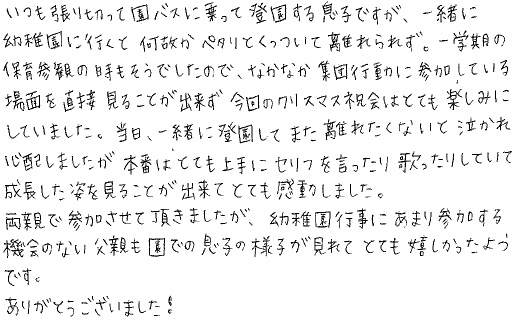 いつも張り切って園バスに乗って登園する息子ですが、一緒に
幼稚園に行くと何故かペタリとくっついて離れられず。一学期の
保育参観の時もそうでしたので、なかなか集団行動に参加している
場面を直接見ることが出来ず今回のクリスマス祝会はとても楽しみに
していました。当日、一緒に登園してまた離れたくないと泣かれ
心配しましたが本番はとても上手にセリフを言ったり歌ったりしていて
成長した姿を見ることが出来てとても感動しました。
両親で参加させて頂きましたが、幼稚園行事にあまり参加する
機会のない父親も園での息子の様子が見れてとても嬉しかったよう
です。
ありがとうございました!